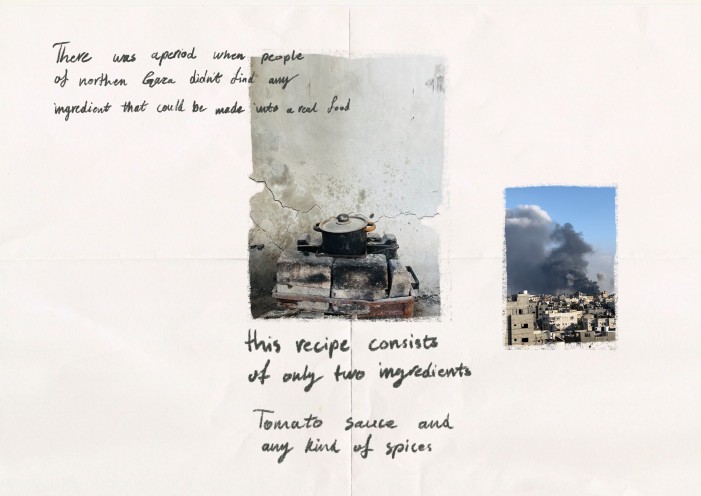 There was aperiod when people
of northen Gaza didn't find any
ingredient that could be made into a real food
this recipe consists
of only two ingredients
Tomato sauce and
any kind of spices